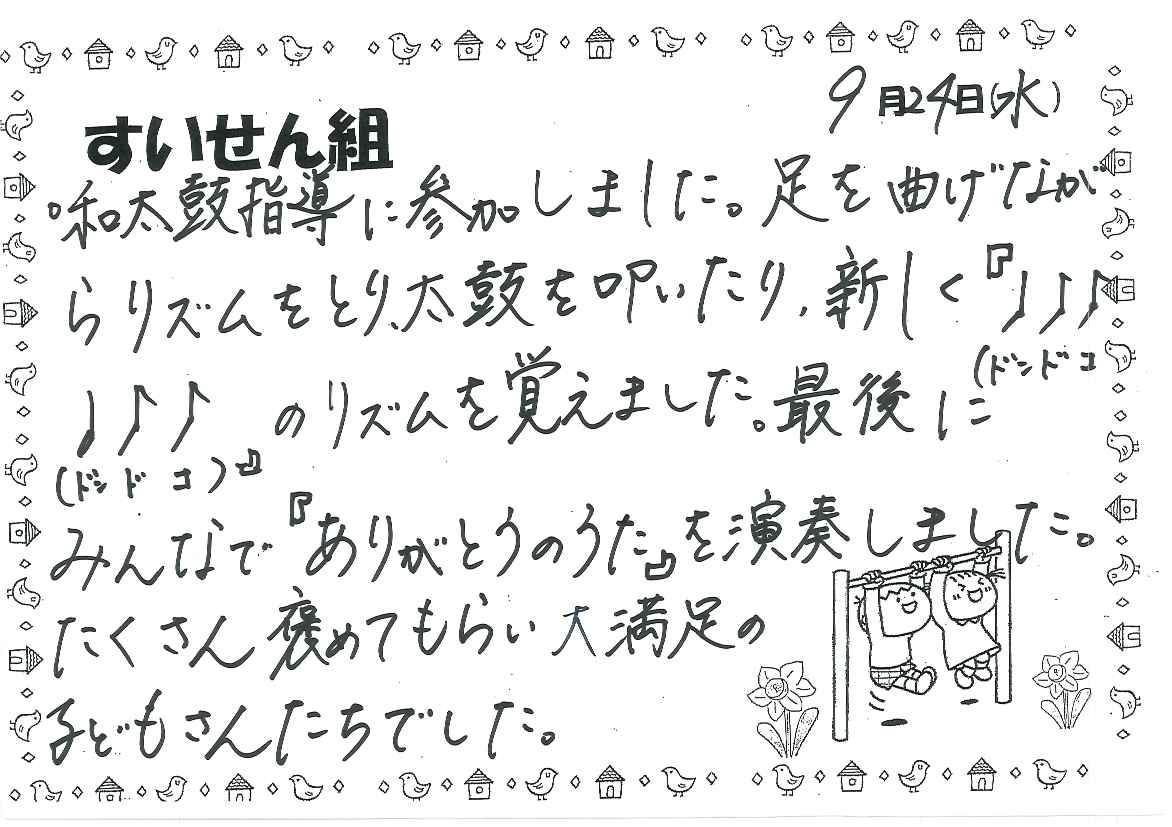 9月24日(水)
すいせん組
和太鼓指導に参加しました。足を曲げなが
らリズムをとり、太鼓を叩いたり、新しく『♩♩♪
(ドンドコ
♩♪♪ のリズムを覚えました。最後に
(ドンドコ)』
みんなで『ありがとうのうた』を演奏しました。
たくさん褒めてもらい大満足の
子どもさんたちでした。